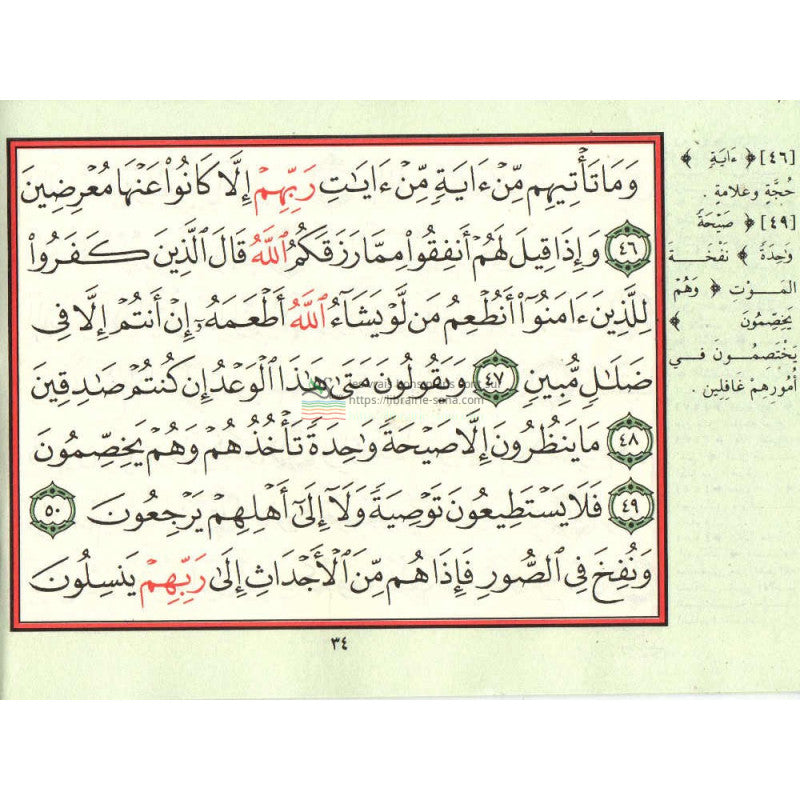 وَمَا تَأْتِيهِم مِّنْ ءَايَةٍ مِّنْ ءَايَٰتِ رَبِّهِمْ إِلَّا كَانُوا۟ عَنْهَا مُعْرِضِينَ
٤٦ وَإِذَا قِيلَ لَهُمْ أَنفِقُوا۟ مِمَّا رَزَقَكُمُ ٱللَّهُ قَالَ ٱلَّذِينَ كَفَرُوا۟
لِلَّذِينَ ءَامَنُوٓا۟ أَنُطْعِمُ مَن لَّوْ يَشَآءُ ٱللَّهُ أَطْعَمَهُۥٓ إِنْ أَنتُمْ إِلَّا فِى
ضَلَٰلٍ مُّبِينٍ ٤٧ وَيَقُولُونَ مَتَىٰ هَٰذَا ٱلْوَعْدُ إِن كُنتُمْ صَٰدِقِينَ
https://librairie-sana.com
٤٨ مَا يَنظُرُونَ إِلَّا صَيْحَةً وَٰحِدَةً تَأْخُذُهُمْ وَهُمْ يَخِصِّمُونَ
٤٩ فَلَا يَسْتَطِيعُونَ تَوْصِيَةً وَلَآ إِلَىٰٓ أَهْلِهِمْ يَرْجِعُونَ ٥٠
وَنُفِخَ فِى ٱلصُّورِ فَإِذَا هُم مِّنَ ٱلْأَجْدَاثِ إِلَىٰ رَبِّهِمْ يَنسِلُونَ
٣٤
[٤٦] ﴿ ءَايَةٍ ﴾
حُجَّةٍ وعلامةٍ .
[٤٩] ﴿ صَيْحَةً
وَٰحِدَةً ﴾ نَفْخَةَ
المَوْتِ ﴿ وَهُمْ
يَخِصِّمُونَ ﴾
يَخْتَصِمُونَ في
أُمُورِهِمْ غَافِلِين .